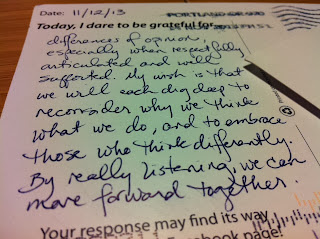 Date: 11/12/13
PORTLAND OR 970
Today, I dare to be grateful for
differences of opinion,
especially when respectfully
articulated and well
supported. My wish is that
we will each dig deep to
reconsider why we think
what we do, and to embrace
those who think differently.
By really listening, we can
move forward together.
Your response may find its way
Facebook page!